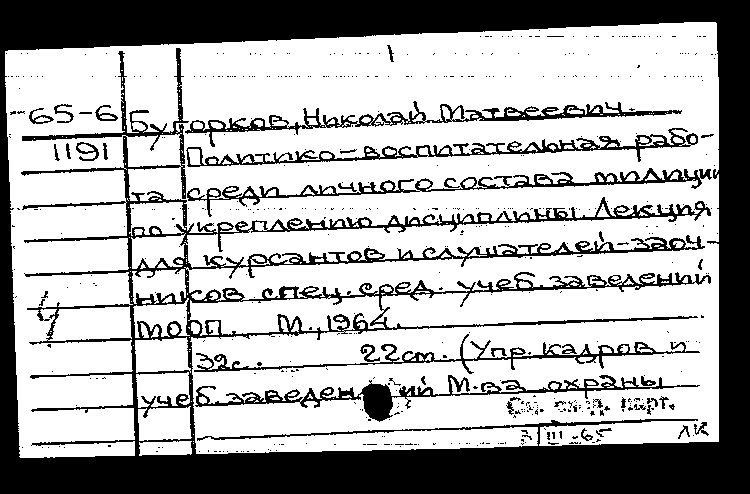 65-6 Бугорков, Николай Матвеевич.
1191 Политико-воспитательная рабо-
та среди личного состава милиции
по укреплению дисциплины. Лекция
для курсантов и слушателей-заоч-
ников спец. сред. учеб. заведений
4 МООП. М., 1964.
32с. 22см. (Упр. кадров и
учеб. заведений М-ва охраны
См. след. карт.
3/III-65 ЛК